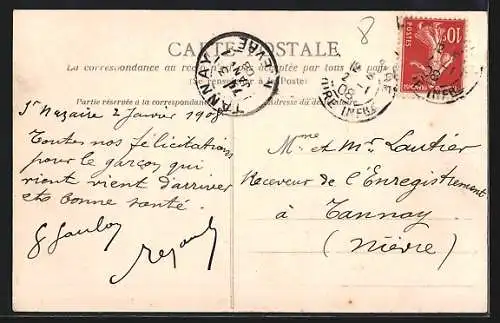 8
CARTE POSTALE
La correspondance au recto n'est pas acceptée par tous les pays
(Se renseigner à la Poste)
Partie réservée à la correspondance
Adresse du destinataire
TANNAY
NIÈVRE
POSTES
10
LOIRE INFRE
2 - 1
08
St Nazaire 2 Janvier 1908
Toutes nos félicitations
pour le garçon qui
vient d'arriver
et bonne santé.
Mme et Mr. Lautier
Receveur de l'Enregistrement
à Tannay
(Nièvre)